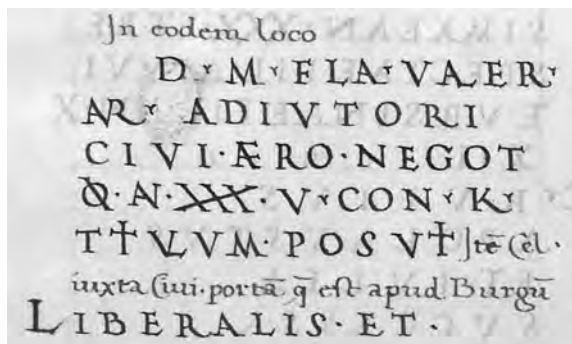 In eodem loco
D · M · FLA · VAER ·
AR · ADIVTORI
CIVI · ÆRO · NEGOT
Q · AN · XXX · V · CON · K ·
T†VLVM · POSV† Itē Cēl ·
iuxta Ciui · portā q̄ est apud Burgū
LIBERALIS · ET ·